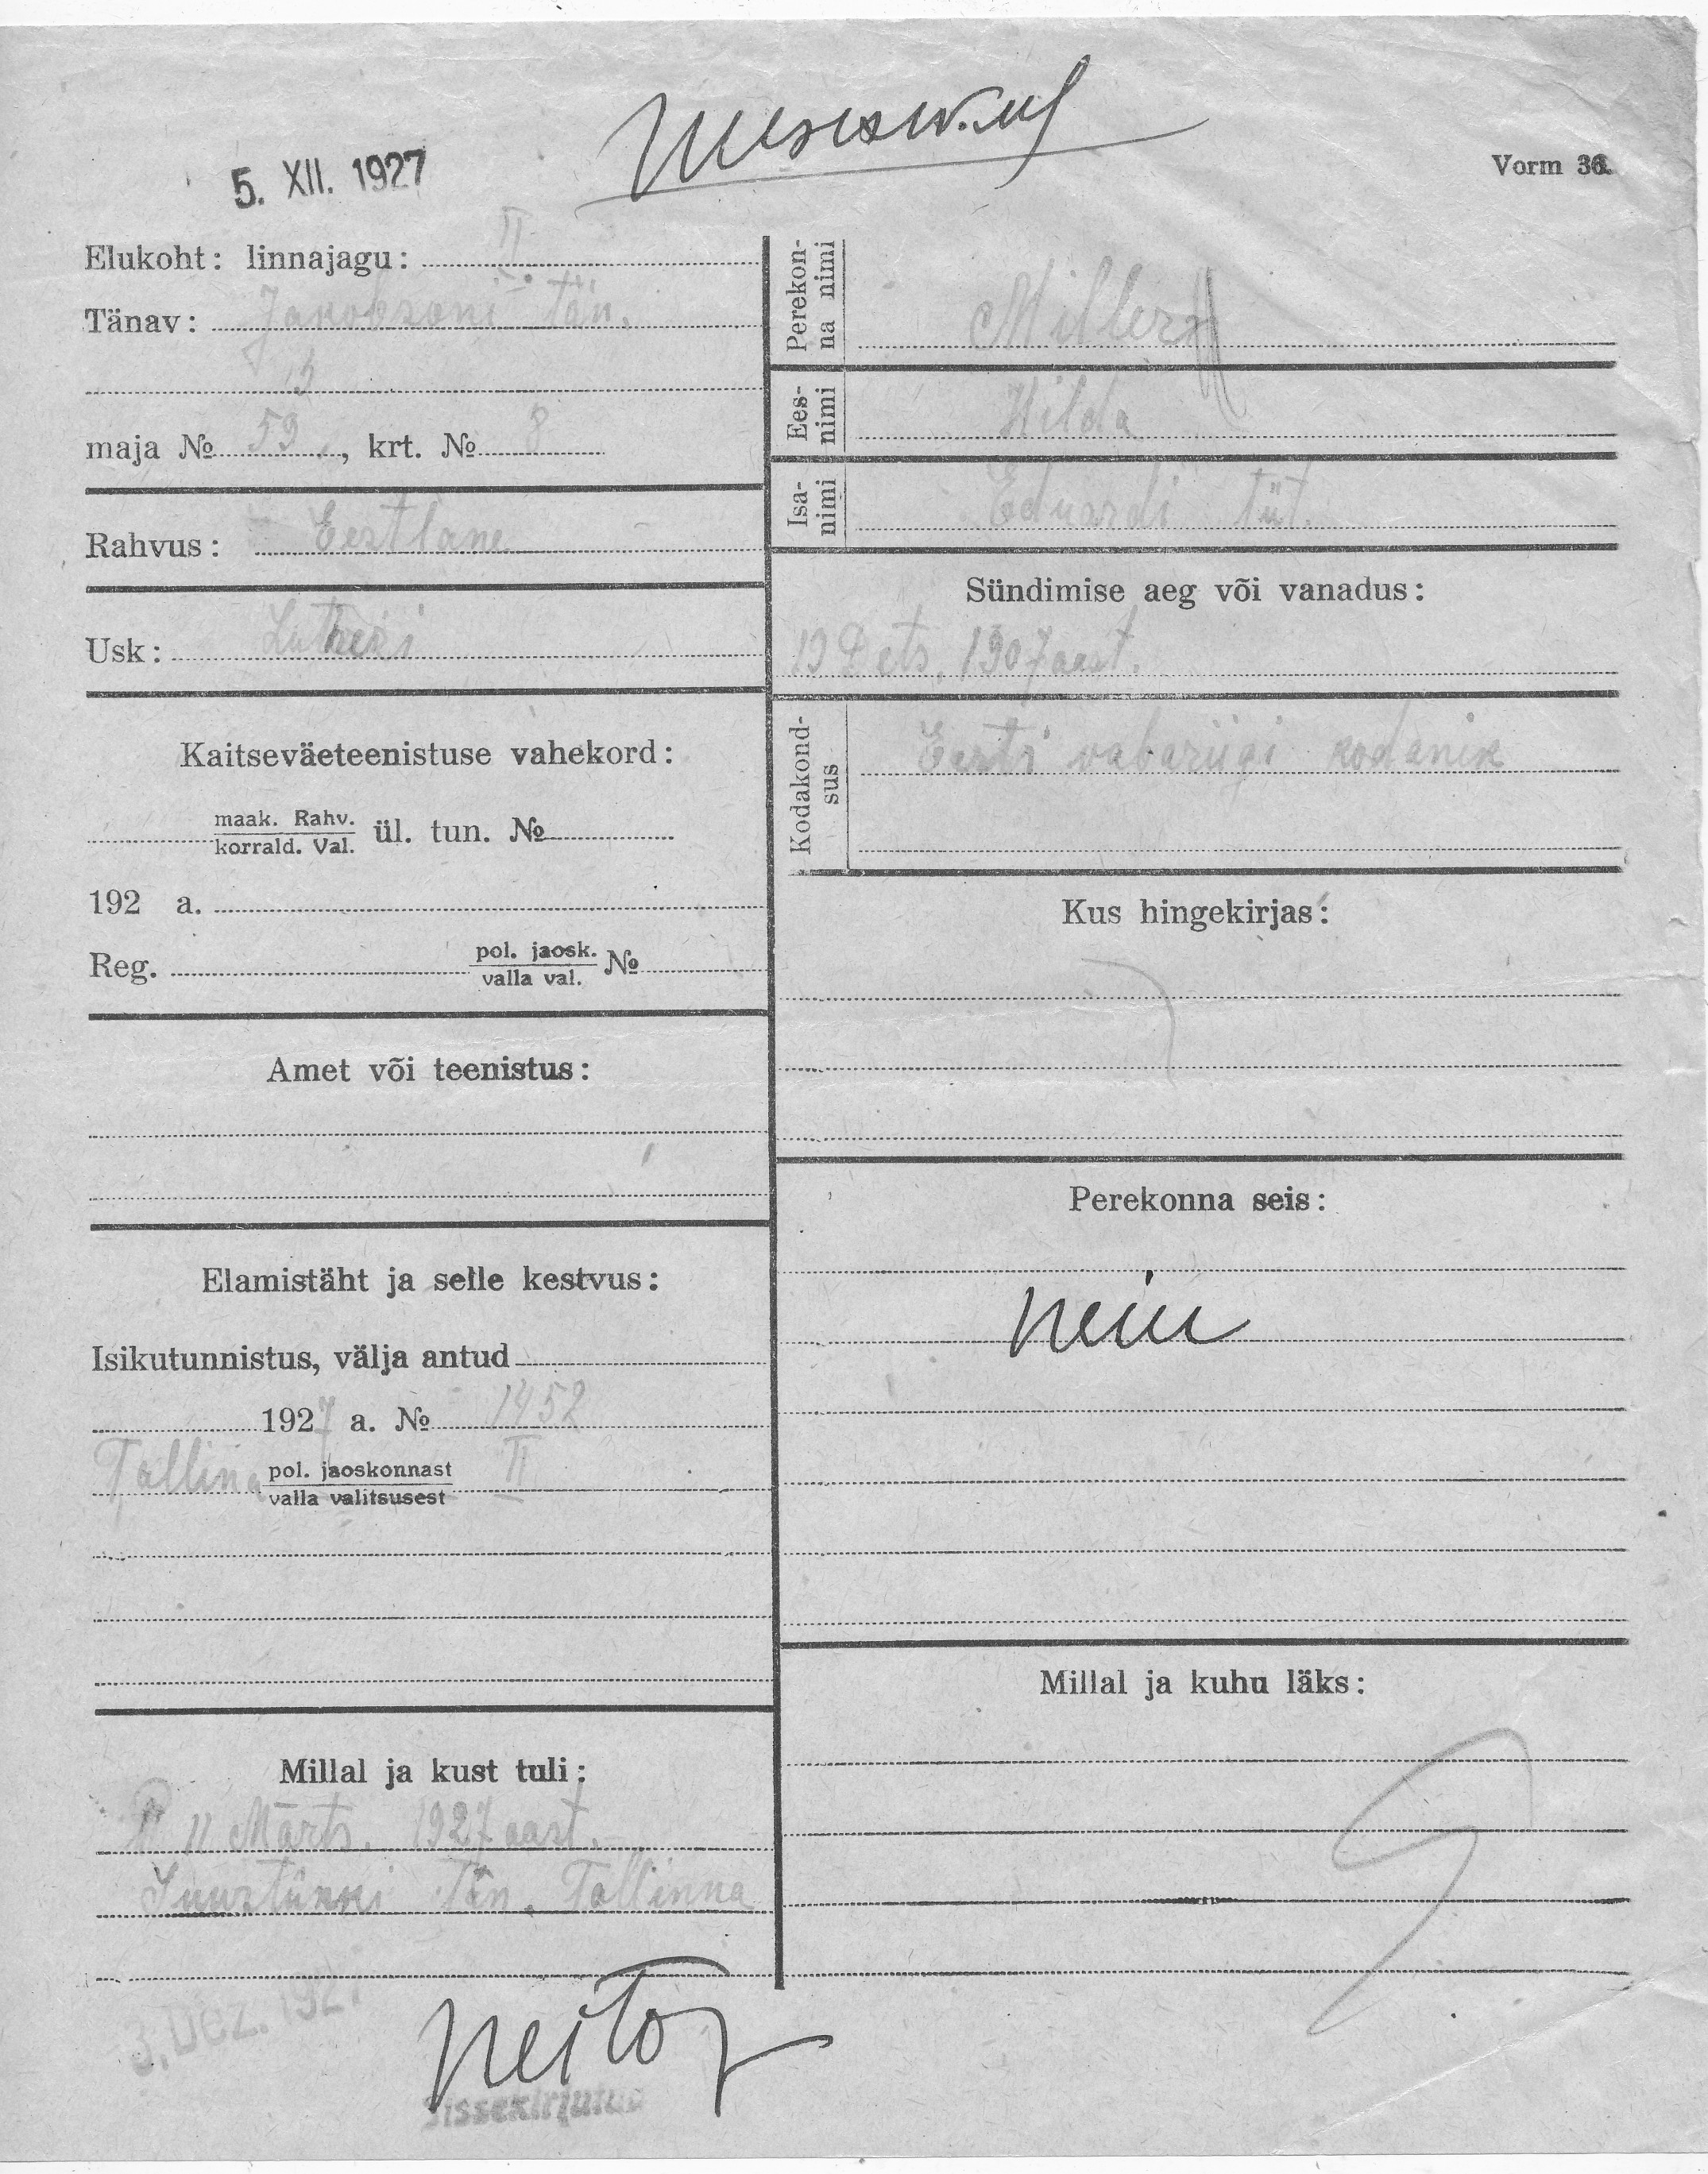 5. XII. 1927
Vorm 36.
Elukoht: linnajagu: II.
Tänav: Jakobsoni tän.
maja № 59, krt. № 8
Rahvus: Eestlane
Usk: Lutheri
Kaitseväeteenistuse vahekord:
maak. Rahv.
korrald. Val. ül. tun. №
192 a.
Reg. pol. jaosk.
valla val. №
Amet või teenistus:
Elamistäht ja selle kestvus:
Isikutunnistus, välja antud
1927 a. № 1452
Tallina pol. jaoskonnast II
valla valitsusest
Millal ja kust tuli:
11 Märts. 1927 aast.
Tän. Tallinna
Perekon-
na nimi
Miller
Ees-
nimi
Hilda
Isa-
nimi
Eduardi tüt.
Sündimise aeg või vanadus:
19 Dets. 1907 aast.
Kodakond-
sus
Eesti vabariigi kodanik
Kus hingekirjas:
Perekonna seis:
neiu
Millal ja kuhu läks:
3. Dez. 192
Sissekirjutud